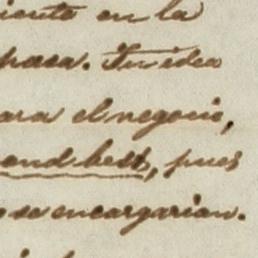 iente en la
hasa. Tu idea
ara el negocio,
end best, pues
o se encargarian.